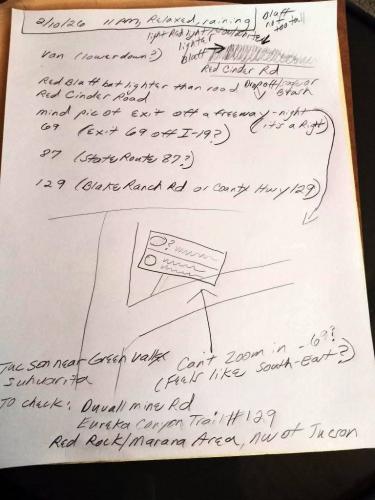 2/10/26 11 AM, Relaxed, raining
Bluff
not
too tall
light Red light/
lighter
bluff
Red Cinder Rd
Van (lower down?)
Red Bluff but lighter than road Dropoff/
Red Cinder Road Brush
mind pic of Exit off a freeway-night
(it's a Right)
69 (Exit 69 off I-19?)
87 (State Route 87?)
129 (Blake Ranch Rd or County Hwy 129)
?
Tucson near Green Valley
Sahuarita
Can't zoom in - 69?
(Feels like South-East?)
To check: Duvall mine Rd
Eureka Canyon Trail #129
Red Rock/Marana Area, NW of Tucson